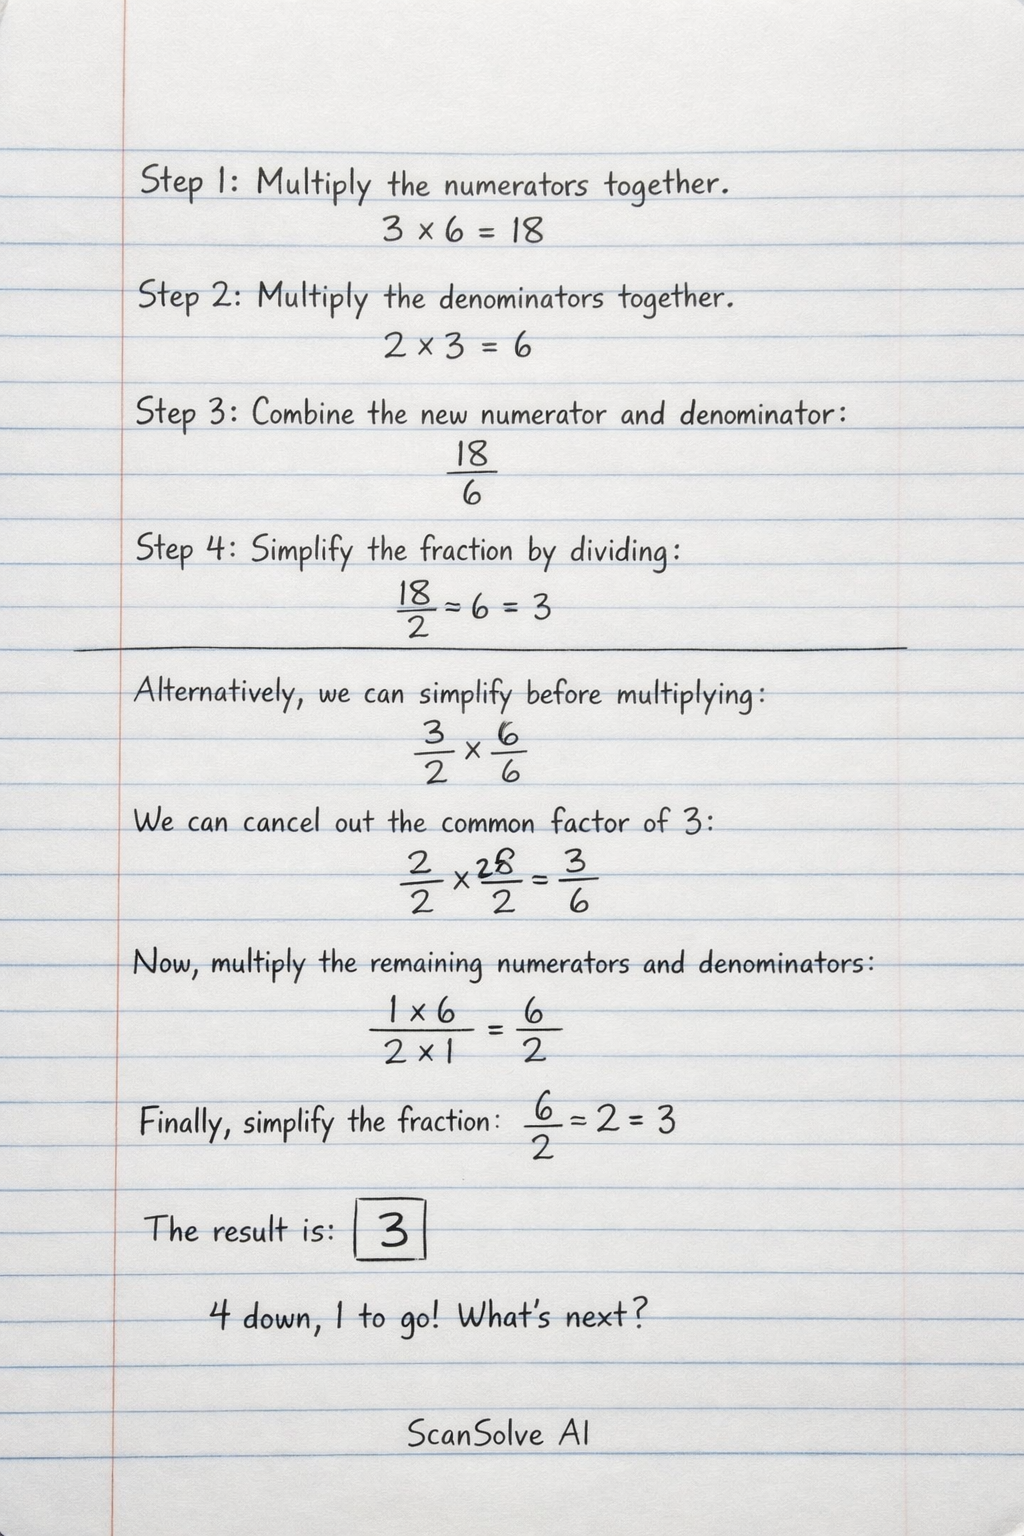 Step 1: Multiply the numerators together.
3 × 6 = 18
Step 2: Multiply the denominators together.
2 × 3 = 6
Step 3: Combine the new numerator and denominator:
18/6
Step 4: Simplify the fraction by dividing:
18/2 = 6 = 3
Alternatively, we can simplify before multiplying:
3/2 × 6/6
We can cancel out the common factor of 3:
2/2 × 28/2 = 3/6
Now, multiply the remaining numerators and denominators:
1 × 6/2 × 1 = 6/2
Finally, simplify the fraction: 6/2 = 2 = 3
The result is: 3
4 down, 1 to go! What's next?
ScanSolve AI